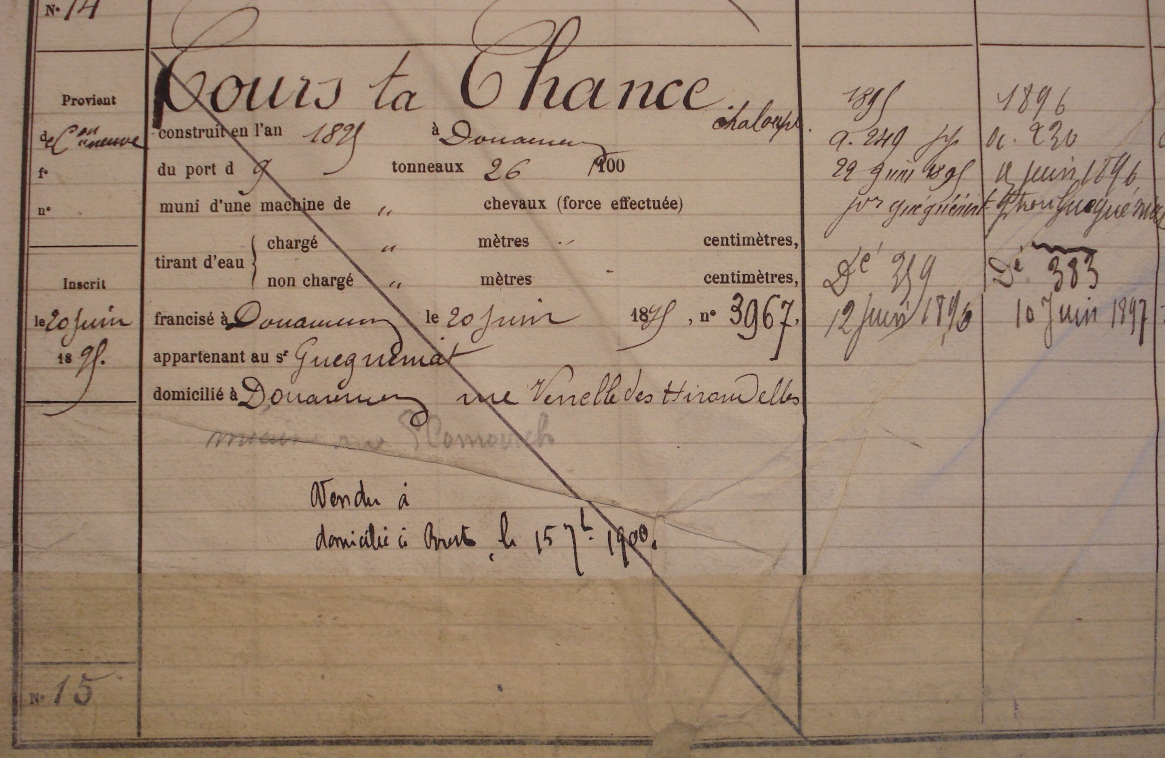 N° 14
Cours ta Chance
chaloupe
Provient
de Con neuve
f°
n°
Inscrit
le 20 Juin
1895.
construit en l'an 1895 à Douarnenez
du port d 9 tonneaux 26 /100
muni d'une machine de " chevaux (force effectuée)
tirant d'eau { chargé " mètres " centimètres,
non chargé " mètres centimètres,
francisé à Douarnenez le 20 Juin 1895, n° 3967,
appartenant au sr
domicilié à Douarnenez rue Venelle des Hirondelles
rue
Vendu à
domicilié à Brest, le 15 7b. 1900.
1895
a. 249
22 Juin 1895
Dé 359
12 Juin 1896
1896
a. 230
Juin 1896
Dé 383
10 Juin 1897
N° 15